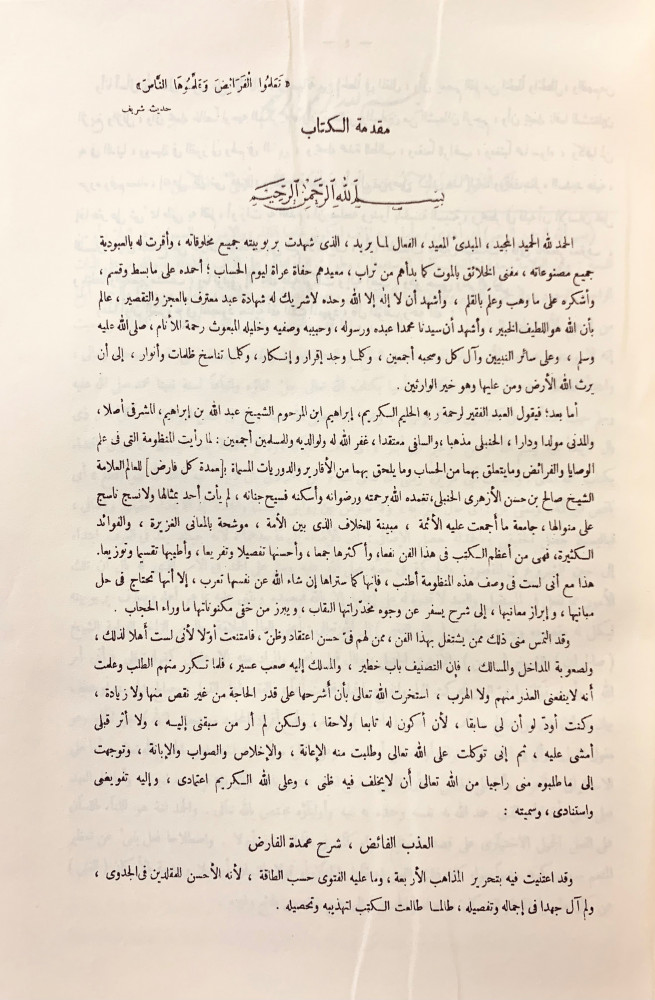 « تَعَلَّمُوا الْفَرَائِضَ وَعَلِّمُوهَا النَّاسَ »
حديث شريف
مقدمة الكتاب
بسم الله الرحمن الرحيم
الحمد لله الحميد المجيد ، المبدئ المعيد ، الفعال لما يريد ، الذى شهدت بربوبيته جميع مخلوقاته ، وأقرت له بالعبودية
جميع مصنوعاته ، مفنى الخلائق بالموت كما بدأهم من تراب ، معيدهم حفاة عراة ليوم الحساب ؛ أحمده على مابسط وقسم ،
وأشكره على ما وهب وعلّم بالقلم ، وأشهد أن لا إله إلا الله وحده لاشريك له شهادة عبد معترف بالعجز والتقصير ، عالم
بأن الله هو اللطيف الخبير ، وأشهد أن سيدنا محمدا عبده ورسوله ، وحبيبه وصفيه وخليله المبعوث رحمة للأنام ، صلى الله عليه
وسلم ، وعلى سائر النبيين وآل كل وصحبه أجمعين ، وكلما وجد إقرار وإنكار ، وكلما تناسخ ظلمات وأنوار ، إلى أن
يرث الله الأرض ومن عليها وهو خير الوارثين .
أما بعد؛ فيقول العبد الفقير لرحمة ربه الحليم الكريم، إبراهيم ابن المرحوم الشيخ عبد الله بن إبراهيم، المشرقى أصلا ،
والمدنى مولدا ودارا ، الحنبلى مذهبا ،والسلفى معتقدا ، غفر الله له ولوالديه وللمسلمين أجمعين : لما رأيت المنظومة التى فى علم
الوصايا والفرائض ومايتعلق بهما من الحساب وما يلحق بهما من الأقارير والدوريات المسماة بـ[عمدة كل فارض] للعالم العلامة
الشيخ صالح بن حسن الأزهرى الحنبلى،تغمده الله برحمته ورضوانه وأسكنه فسيح جنانه ، لم يأت أحد بمثالها ولانسج ناسج
على منوالها ، جامعة ما أجمعت عليه الأئمة ، مبينة للخلاف الذى بين الأمة ، موشحة بالمعانى الغزيرة ، والفوائد
الكثيرة، فهى من أعظم الكتب فى هذا الفن نفعا، وأكثرها جمعا ، وأحسنها تفصيلا وتفريعا ، وأطيبها تقسيما وتوزيعا.
هذا مع أنى لست فى وصف هذه المنظومة أطنب ، فإنها كما ستراها إن شاء الله عن نفسها تعرب ، إلا أنها تحتاج فى حل
مبانيها ، وإبراز معانيها ، إلى شرح يسفر عن وجوه مخدّراتها النقاب ، ويبرز من خفى مكنوناتها ما وراء الحجاب .
وقد التمس منى ذلك ممن يشتغل بهذا الفن ، ممن لهم فىّ حسن اعتقاد وظنّ ، فامتنعت أوّلا لأنى لست أهلا لذلك ،
ولصعوبة المداخل والمسالك ، فإن التصنيف باب خطير ، والمسلك إليه صعب عسير ، فلما تكرر منهم الطلب وعلمت
أنه لاينفعنى العذر منهم ولا الهرب ، استخرت الله تعالى بأن أشرحها على قدر الحاجة من غير نقص منها ولا زيادة ،
وكنت أودّ لو أن لى سابقا ، لأن أكون له تابعا ولاحقا ، ولكن لم أر من سبقنى إليه ، ولا أثر قبلى
أمشى عليه ، ثم إنى توكلت على الله تعالى وطلبت منه الإعانة ، والإخلاص والصواب والإبانة ، وتوجهت
إلى ماطلبوه منى راجيا من الله تعالى أن لايخلف فيه ظنى ، وعلى الله الكريم اعتمادى ، وإليه تفويضى
واستنادى ، وسميته :
العذب الفائض ، شرح عمدة الفارض
وقد اعتنيت فيه بتحرير المذاهب الأربعة ، وما عليه الفتوى حسب الطاقة ، لأنه الأحسن للمقلدين فى الجدوى ،
ولم آل جهدا فى إجماله وتفصيله ، طالما طالعت الكتب لتهذيبه وتحصيله .